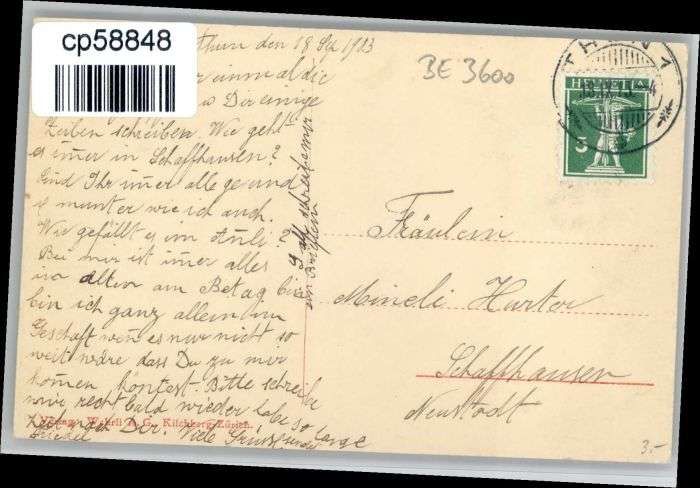 cp58848
Thun den 18 Sept 1913
BE 3600
THUN 1
18.IX.13.-4
HELVETIA
5
einmal die
Dir einige
Zeilen schreiben. Wie geht
es imer in Schaffhausen?
Sind Ihr imer alle gesund
u munter wie ich auch.
Wie gefällt es im
Bei mir ist imer alles
im alten am Betag bin
bin ich ganz allein im
Geschäft wen es nur nicht so
weit wäre dass Du zu mir
komen köntest. Bitte schreibe
mir recht bald wieder habe so lange
Dir. Viele Grüsse
schreibe mir
ein Brieflein
Fräulein
Mineli Harter
Schaffhausen
Neustadt
Verlag Wehrli A. G., Kilchberg-Zürich.
3.-